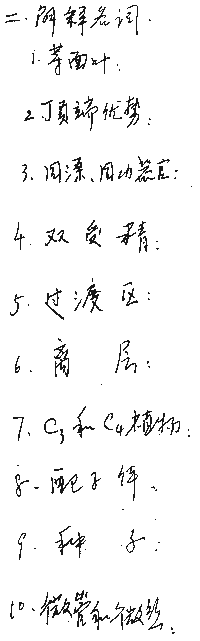 二、解释名词.
1.等面叶:
2.顶端优势:
3.同源、同功器官:
4.双受精:
5.过渡区:
6.离层:
7.C₃和C₄植物:
8.配子体:
9.种子:
10.微管和微丝: